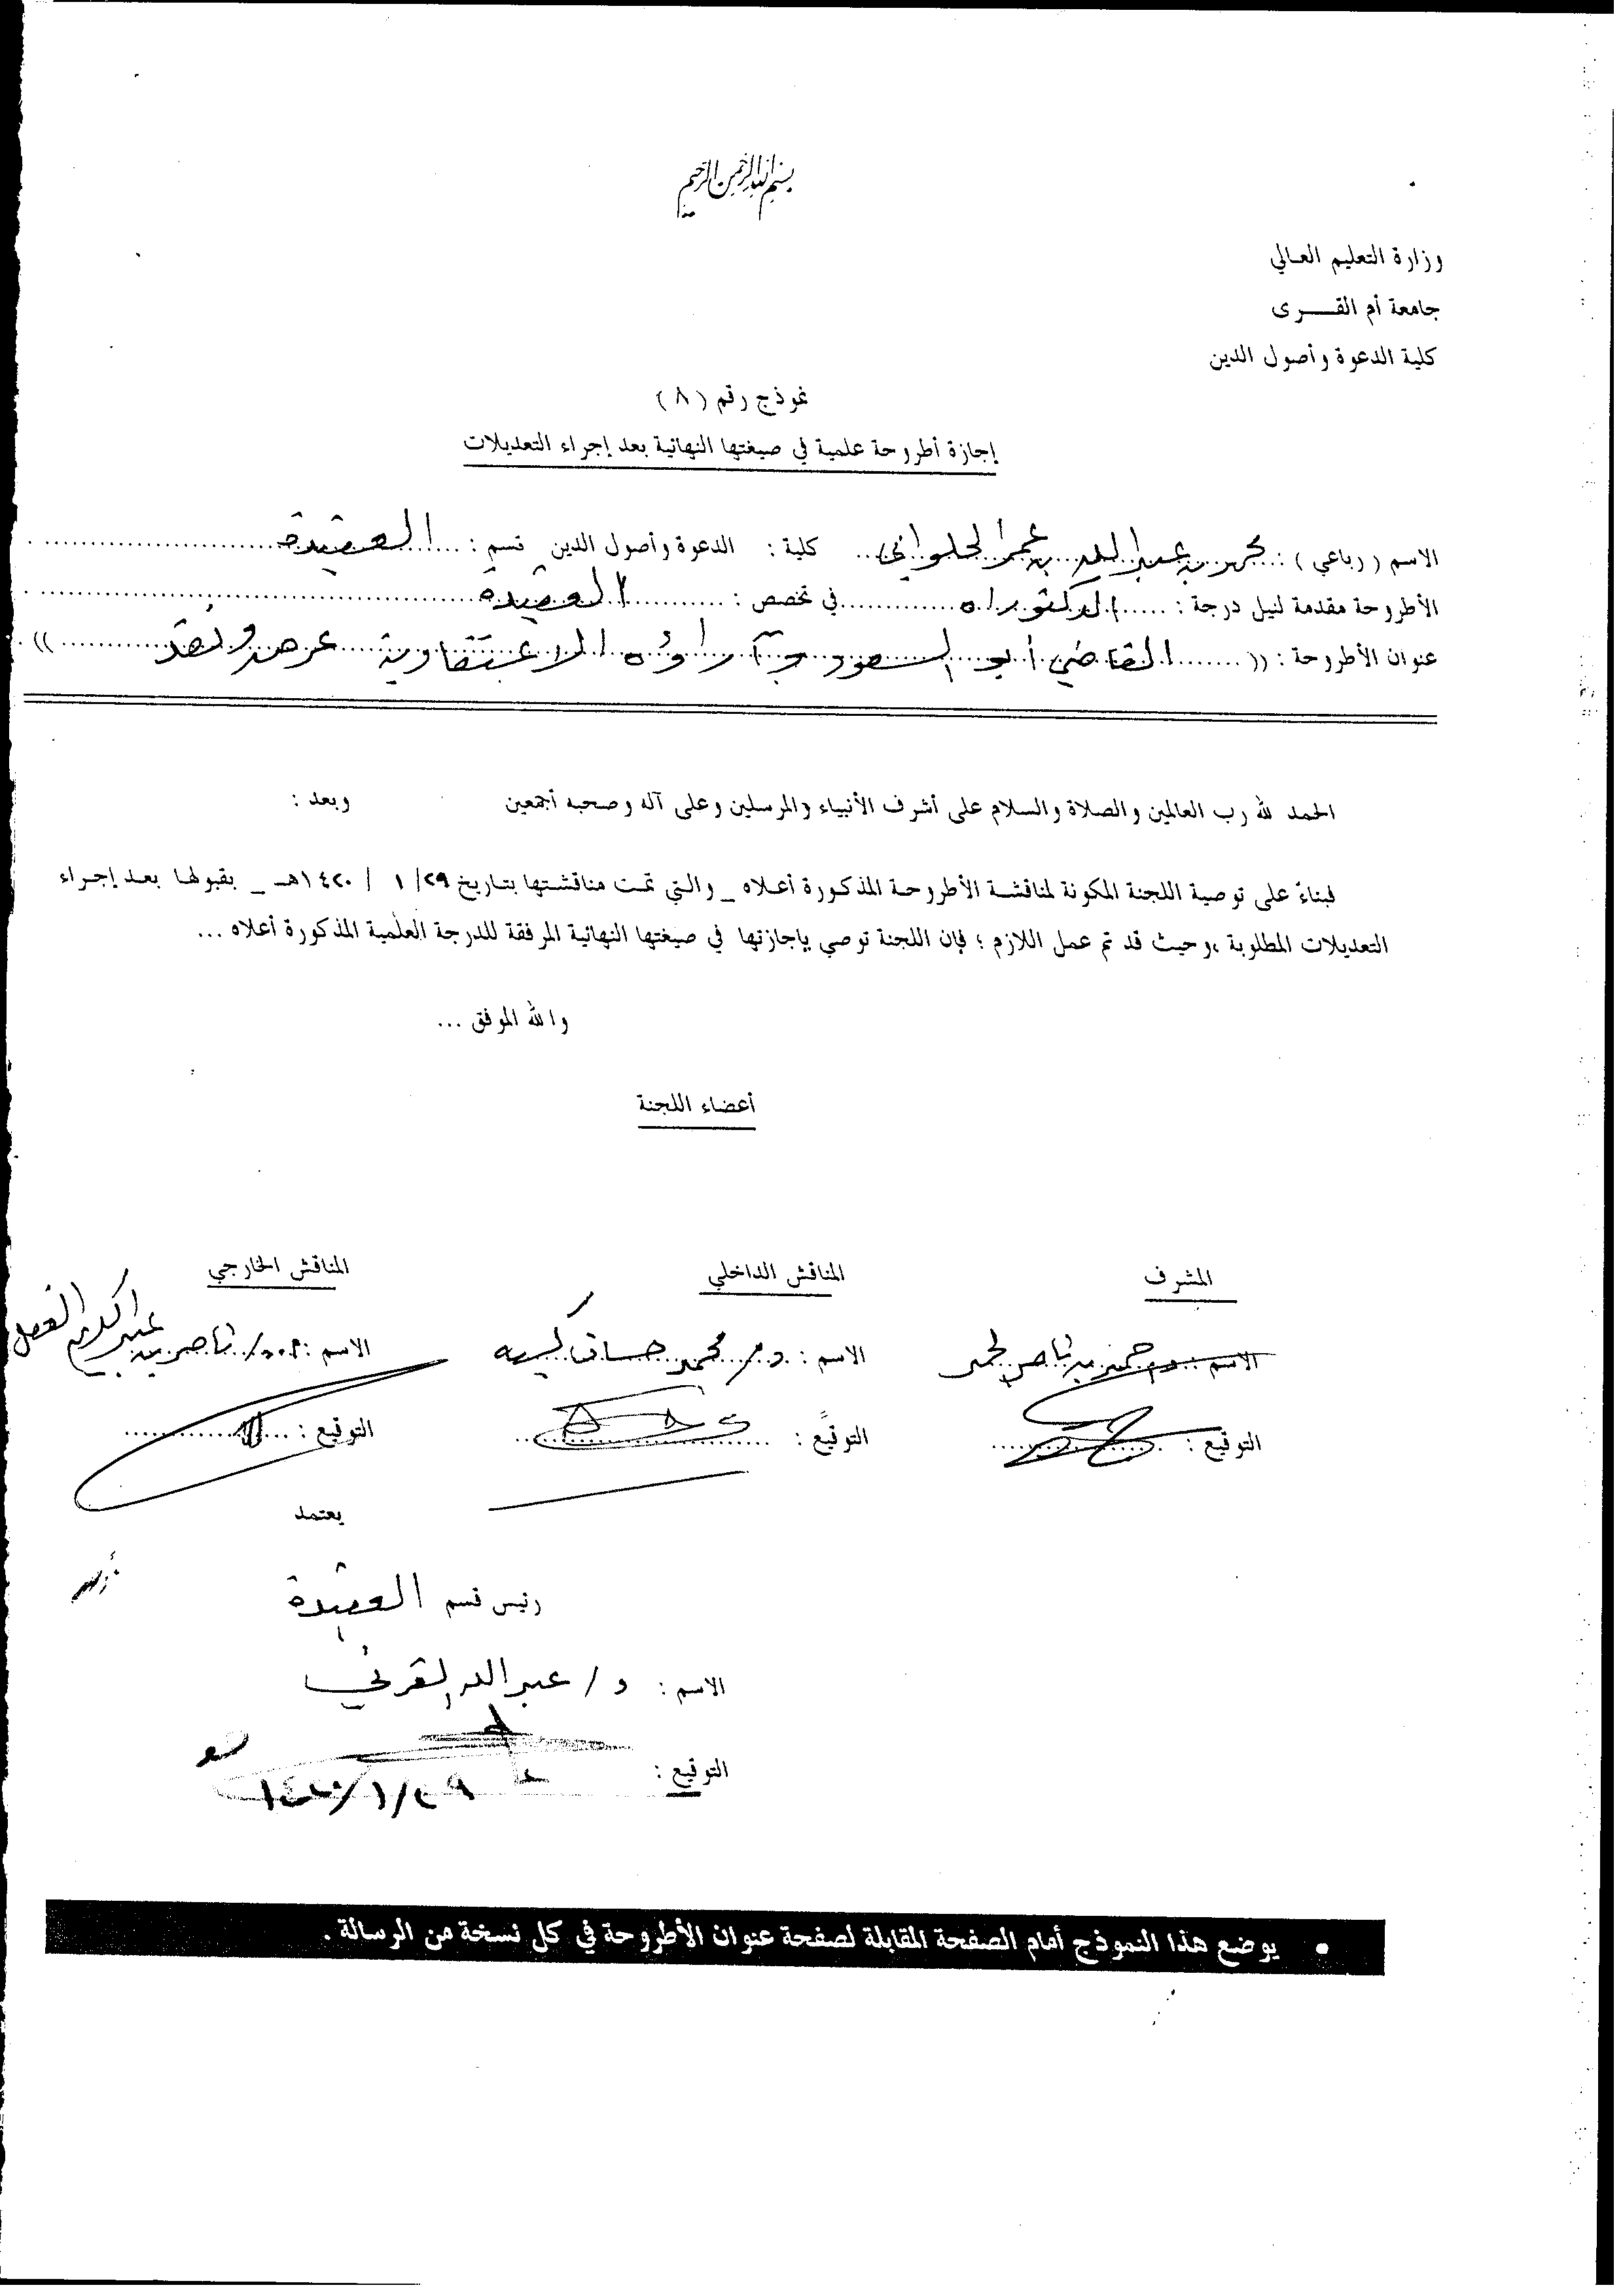 بسم الله الرحمن الرحيم
وزارة التعليم العالي
جامعة أم القــــرى
كلية الدعوة وأصول الدين
نموذج رقم (٨)
إجازة أطروحة علمية في صيغتها النهائية بعد إجراء التعديلات
الاسم (رباعي) : محمد بن عبدالله بن عمر الحلواني كلية : الدعوة وأصول الدين قسم : العقيدة
الأطروحة مقدمة لنيل درجة : الدكتوراه في تخصص : العقيدة
عنوان الأطروحة : (( القاضي أبو السعود وآراؤه الاعتقادية عرض ونقد ))
الحمد لله رب العالمين والصلاة والسلام على أشرف الأنبياء والمرسلين وعلى آله وصحبه أجمعين وبعد :
فبناءً على توصية اللجنة المكونة لمناقشة الأطروحة المذكورة أعلاه _ والتي تمت مناقشتها بتاريخ ٢٩/ ١ / ١٤٢٠هـ _ بقبولها بعد إجراء
التعديلات المطلوبة ،وحيث قد تم عمل اللازم ؛ فإن اللجنة توصي بإجازتها في صيغتها النهائية المرفقة للدرجة العلمية المذكورة أعلاه ...
والله الموفق ...
أعضاء اللجنة
المشرف المناقش الداخلي المناقش الخارجي
الاسم : بن ناصر الاسم : د/ محمد حسان الاسم : د/ ناصر بن عبدالكريم العقل
التوقيع : التوقيع : التوقيع :
يعتمد
رئيس قسم العقيدة
الاسم : د/ عبدالله القرني
التوقيع :
٢٩/١/١٤٢٠
• يوضع هذا النموذج أمام الصفحة المقابلة لصفحة عنوان الأطروحة في كل نسخة من الرسالة .